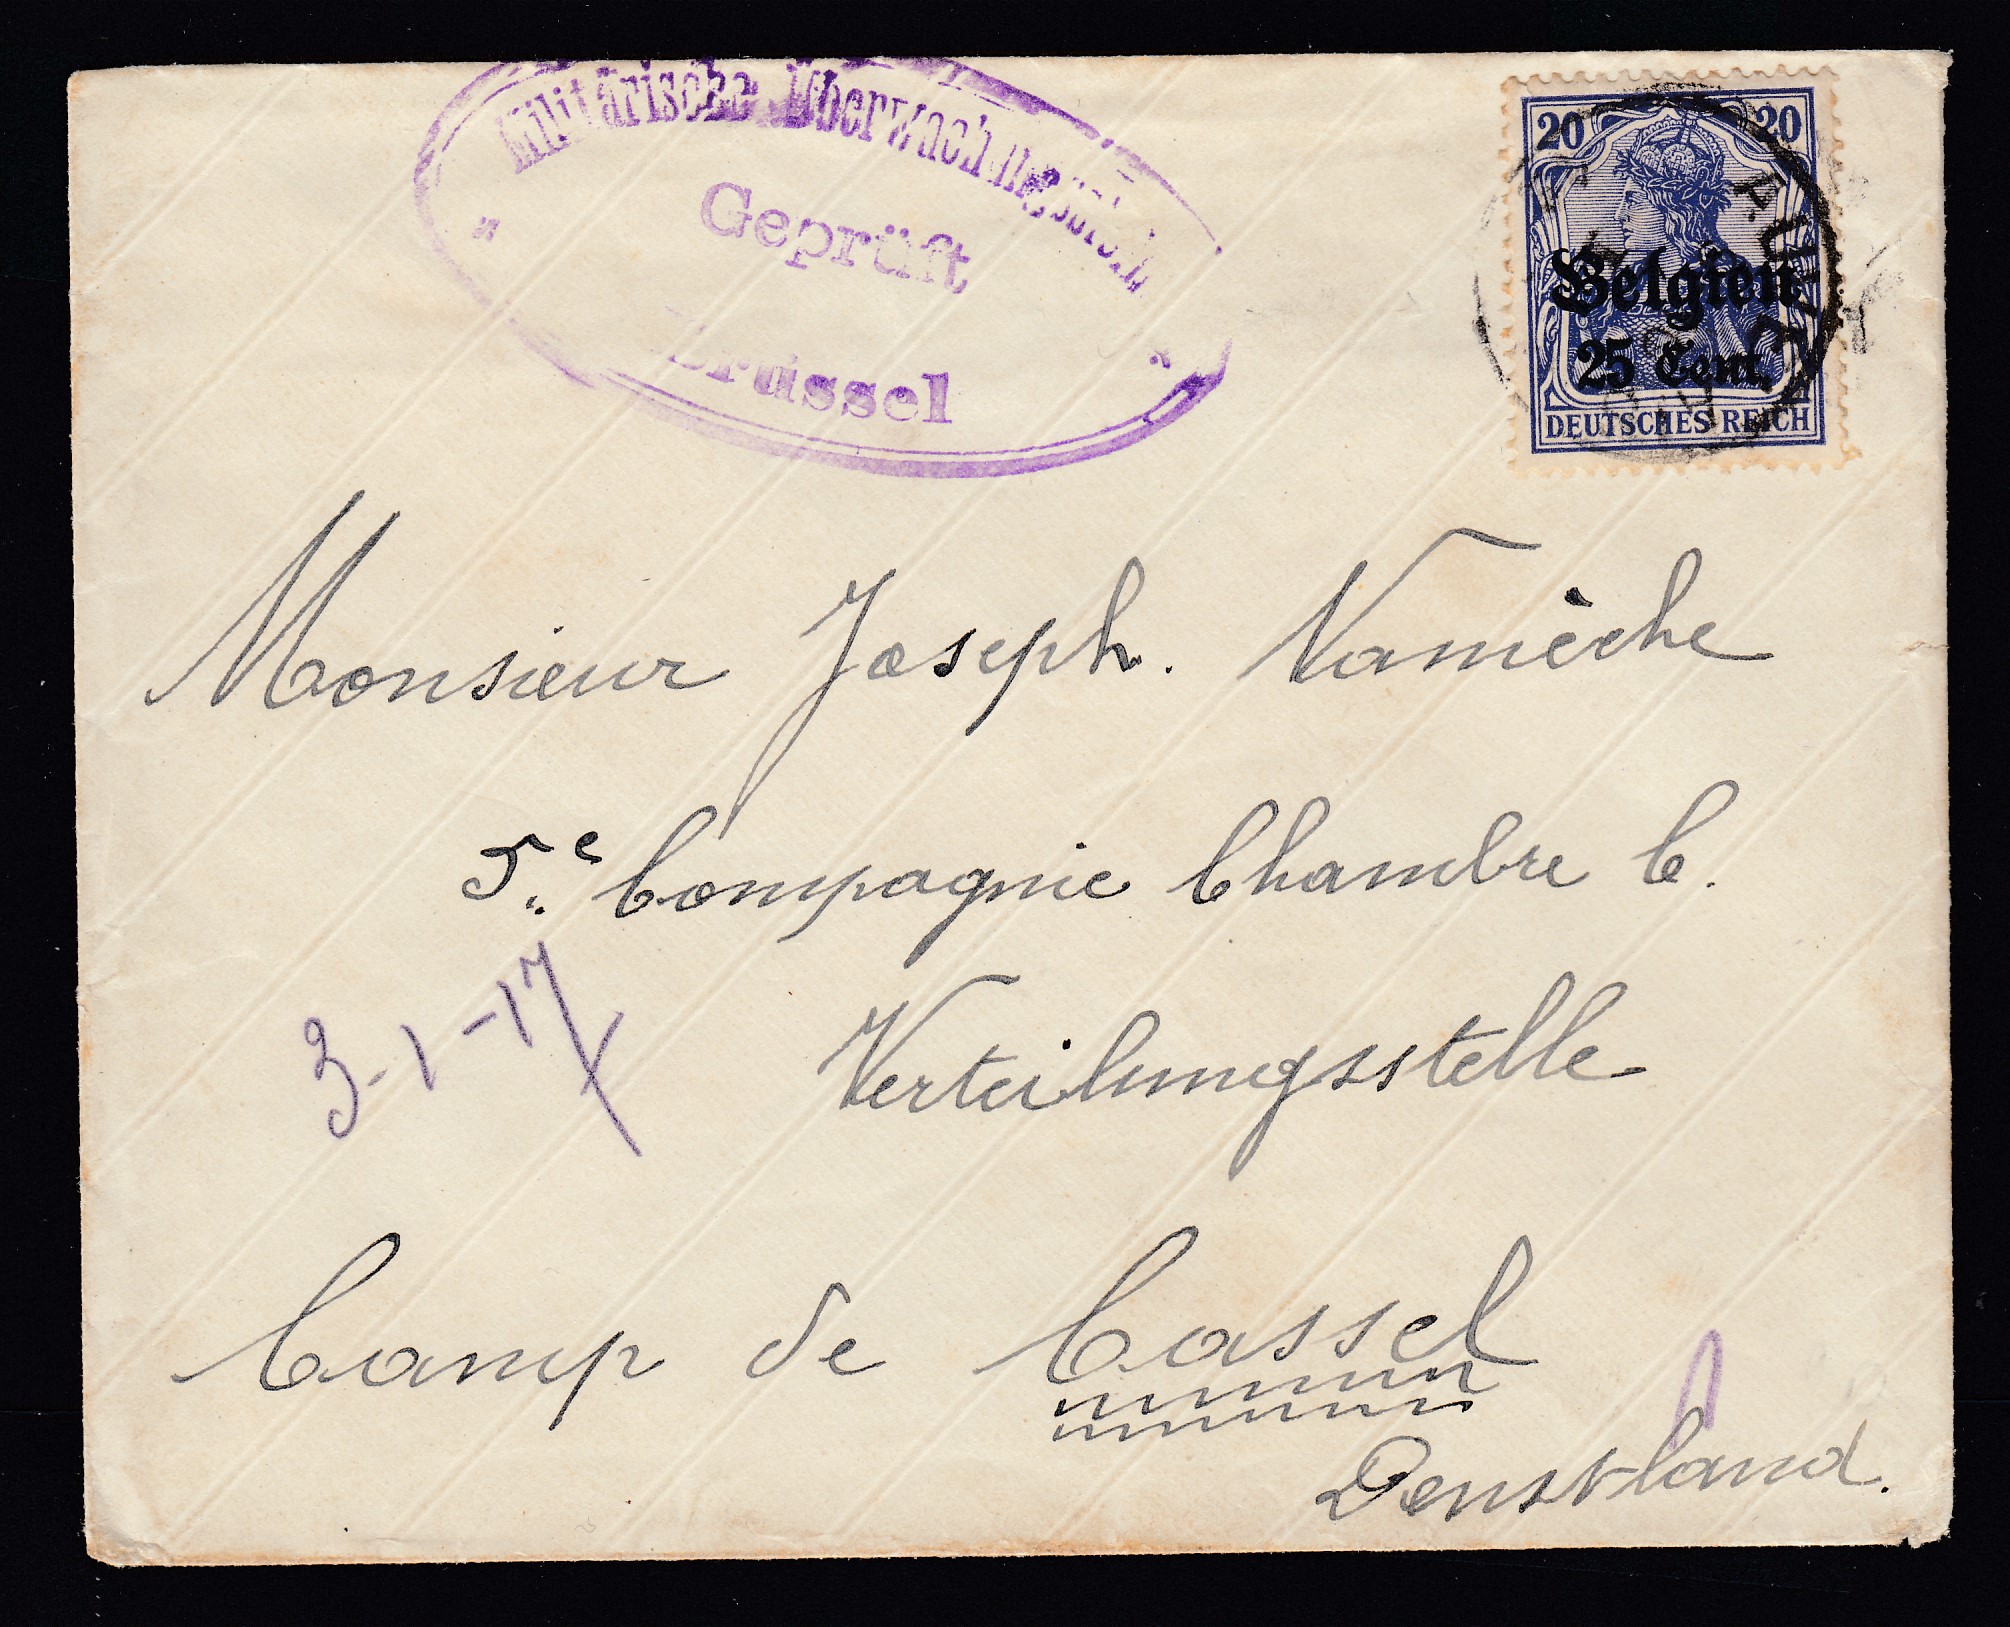 Militärische Überwachungsstelle
Geprüft
Brüssel
20 20
Belgien
25 Cent.
DEUTSCHES REICH
Monsieur Joseph. Vanièche
5e Compagnie Chambre C.
3-1-17
Verteilungsstelle
Camp de Cassel